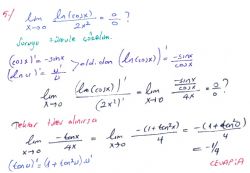 5-) lim x→0 ln(cosx)/2x² = 0/0 ?
Soruyu türevle çözelim.
(cosx)' = -sinx
(ln u)' = u'/u > old. dan (ln(cosx))' = -sinx/cosx
lim x→0 (ln(cosx))'/(2x²)' = lim x→0 (-sinx/cosx)/4x = 0/0 ?
Tekrar türev alınırsa
lim x→0 -tanx/4x = lim x→0 -(1+tan²x)/4 = -(1+tan²0)/4
= -1/4
(tanu)' = (1+tan²u).u'
CEVAP:A